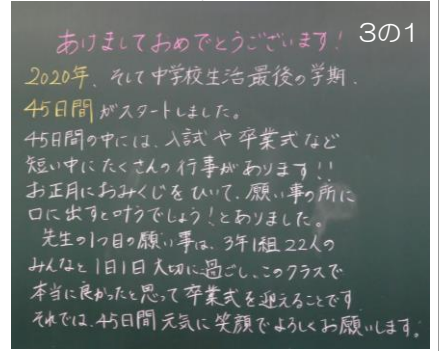 あけましておめでとうございます!
3の1
2020年、そして中学校生活最後の学期、
45日間がスタートしました。
45日間の中には、入試や卒業式など
短い中にたくさんの行事があります!!
お正月におみくじをひいて、願い事の所に
口に出すと叶うでしょう!とありました。
先生の1つ目の願い事は、3年1組22人の
みんなと1日1日大切に過ごし、このクラスで
本当に良かったと思って卒業式を迎えることです
それでは、45日間元気に笑顔でよろしくお願いします。